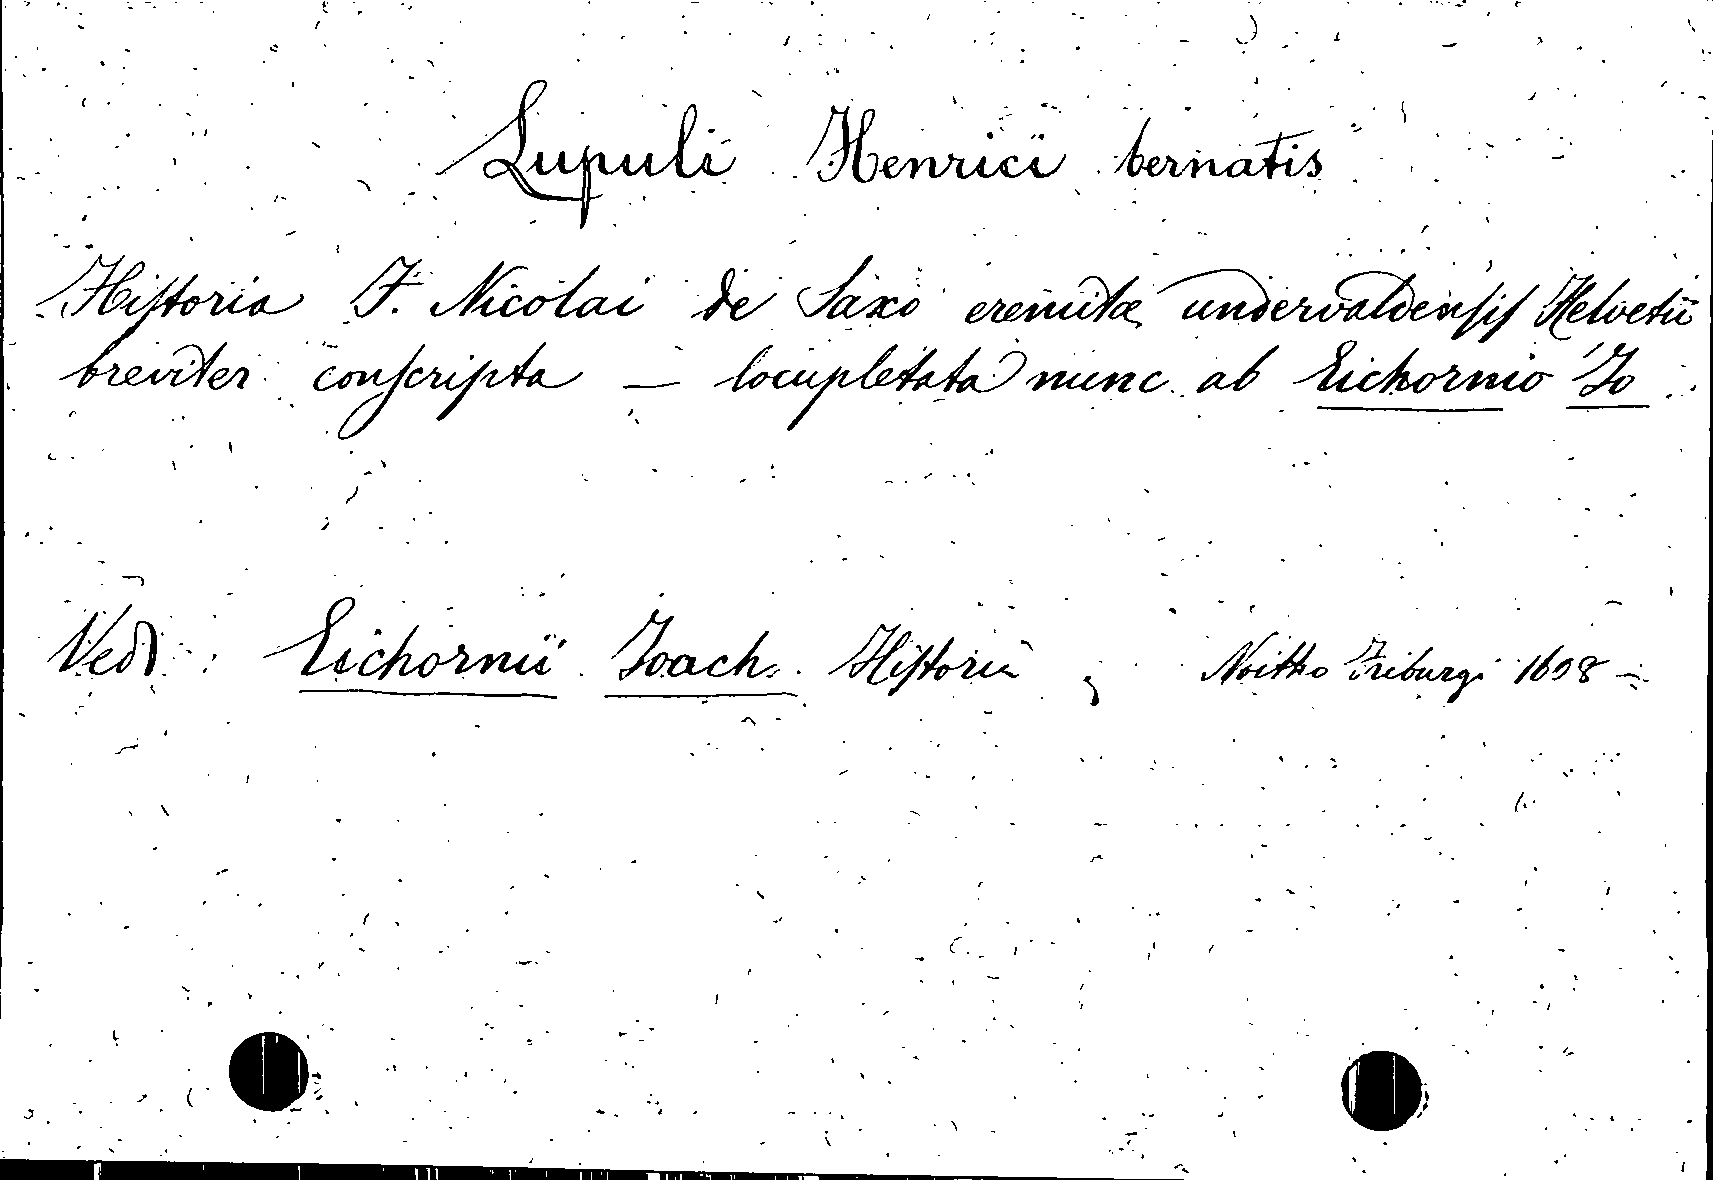 Lupuli Henrici bernatis
Hiſtoria F. Nicolai de Saxo eremitæ undervaldenſiſ Helvetii
breviter conſcripta — locupletata nunc ab Eichornio Jo
Ved: Eichornii Joach. Hiſtoria, Friburgi 1608 —